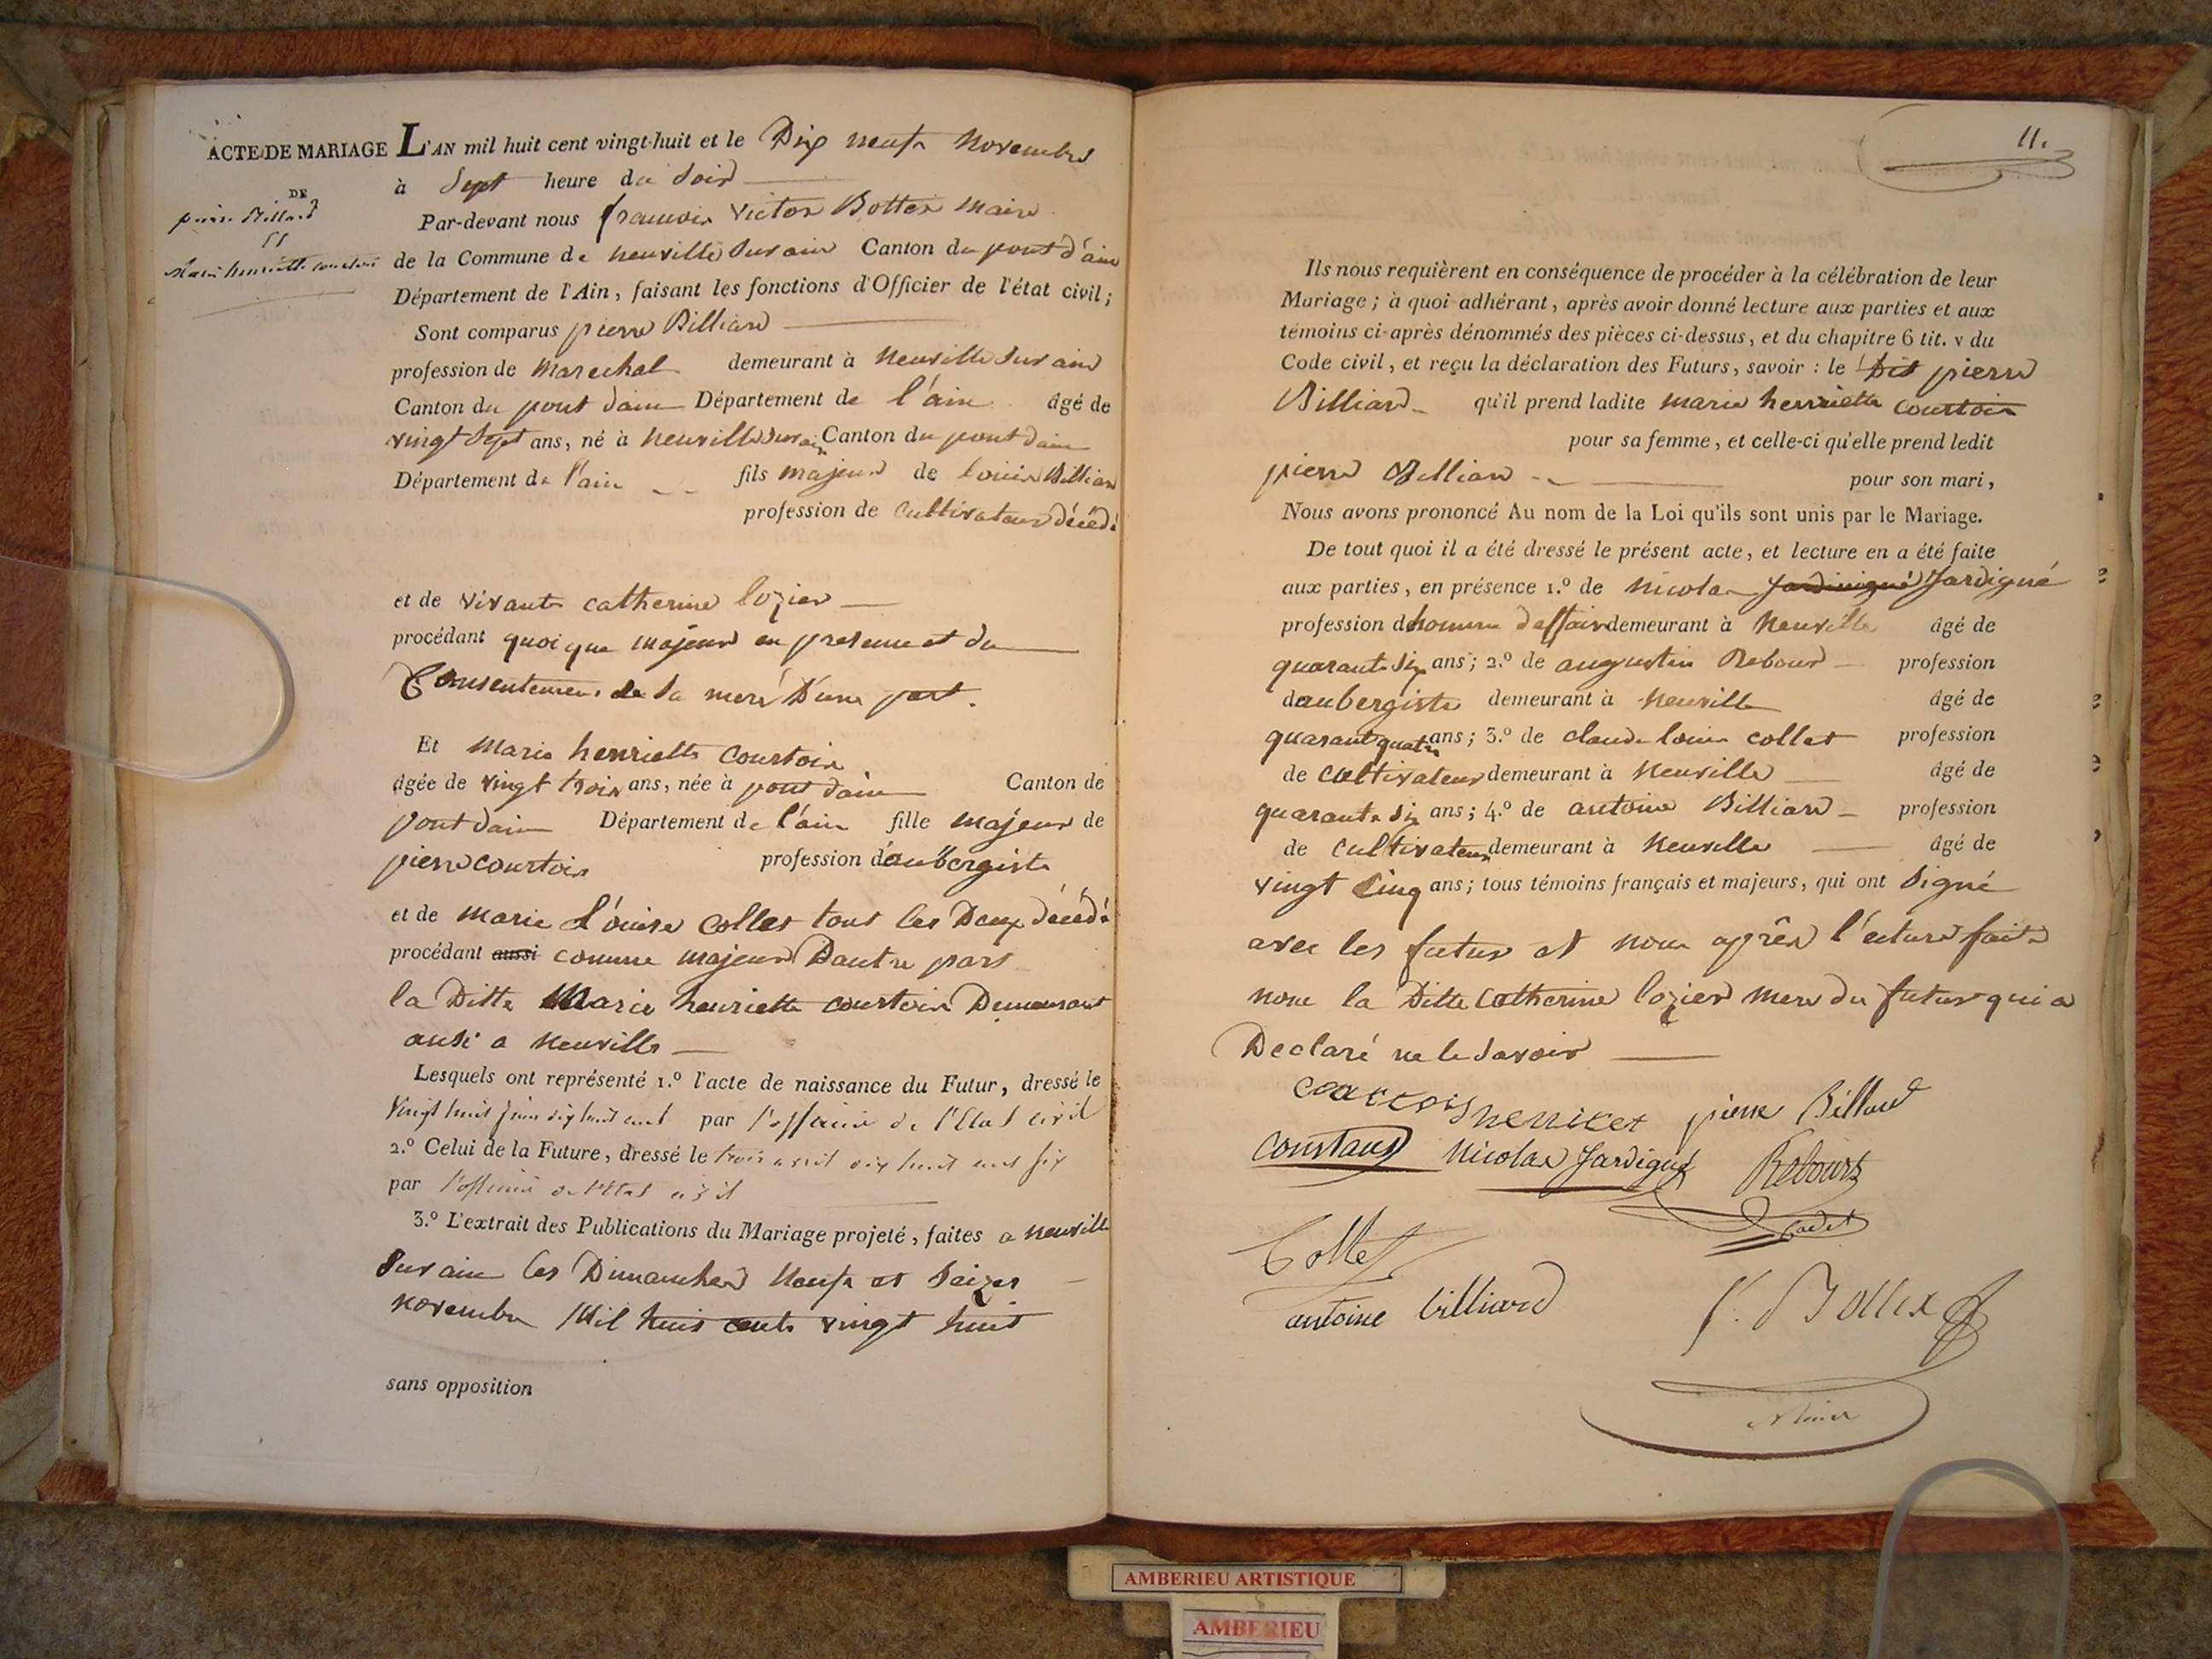 ACTE DE MARIAGE
DE
pierre Billard
et
Marie henriette courtois
L'AN mil huit cent vingt-huit et le Dix neufs novembre
à Sept heure du Soir
Par-devant nous francois victor Bottex maire
de la Commune de neuville Sur ain Canton du pont d'ain
Département de l'Ain, faisant les fonctions d'Officier de l'état civil;
Sont comparus pierre Billiard
profession de marechal demeurant à neuville Sur ain
Canton du pont dain Département de l'ain âgé de
vingt Sept ans, né à neuville Sur ain Canton du pont dain
Département de l'ain fils majeur de louis Billiard
profession de cultivateur décédé
et de vivante catherine lozier
procédant quoi que majeur en presence et du
Consentement de Sa mere D'une part.
Et marie henriette courtois
âgée de vingt trois ans, née à pont dain Canton de
pont dain Département de l'ain fille majeur de
pierre courtois profession d'aubergiste
et de marie l'ouise collet tout les Deux décédé
procédant aussi comme majeur Dautre part
la Ditte Marie henriette courtois Demeurant
ausi a neuville
Lesquels ont représenté 1.º l'acte de naissance du Futur, dressé le
vingt huit dix huit cent par l'officier de l'Etat civil
2.º Celui de la Future, dressé le trois avril dix huit cent six
par l'officier de l'Etat civil
3.º L'extrait des Publications du Mariage projeté, faites a neuville
Sur ain les Dimanches neufs et Seizes
novembre Mil huit cents vingt huit
sans opposition
11.
Ils nous requièrent en conséquence de procéder à la célébration de leur
Mariage; à quoi adhérant, après avoir donné lecture aux parties et aux
témoins ci-après dénommés des pièces ci-dessus, et du chapitre 6 tit. v du
Code civil, et reçu la déclaration des Futurs, savoir : le Dit pierre
Billiard qu'il prend ladite marie henriette courtois
pour sa femme, et celle-ci qu'elle prend ledit
pierre Billiard pour son mari,
Nous avons prononcé Au nom de la Loi qu'ils sont unis par le Mariage.
De tout quoi il a été dressé le présent acte, et lecture en a été faite
aux parties, en présence 1.º de nicolas Jardigné
profession dhomme daffair demeurant à neuville âgé de
quarante Six ans; 2.º de augustin Rebour profession
daubergiste demeurant à neuville âgé de
quarant quatre ans; 3.º de claude louis collet profession
de cultivateur demeurant à neuville âgé de
quarante Six ans; 4.º de antoine Billiard profession
de cultivateur demeurant à neuville âgé de
vingt Cinq ans; tous témoins français et majeurs, qui ont Signé
avec les futur et nous après l'ecture faite
non la Ditte Catherine lozier mere du futur qui a
Declaré ne le Savoir
courtois henriet pierre Billard
Constant Nicolas Jardigné Rebours
Cadet
Collet
antoine billiard f. v. Bottex
Maire
AMBERIEU ARTISTIQUE
AMBERIEU